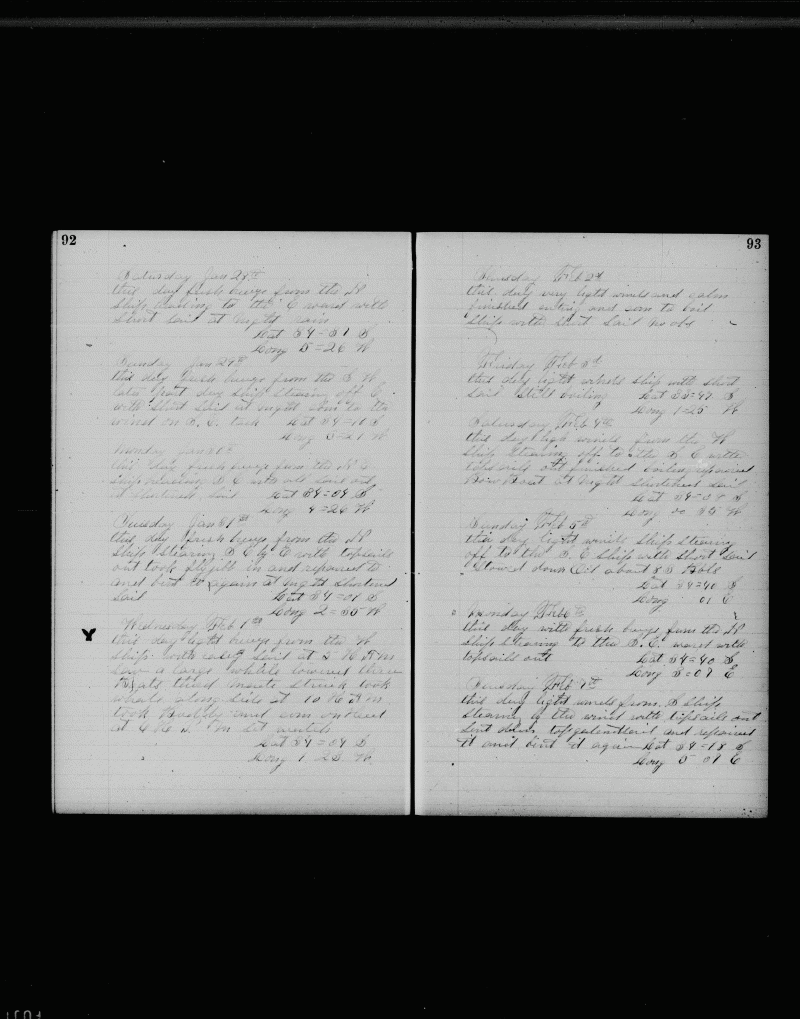 92
Saturday Jan 28th
this day fresh breeze from the N
ship heading to the E ward with
short sail at night rain
Lat 34=37 S
Long 5=26 W
Sunday Jan 29th
this day fresh breeze from the S W
later part day ship steering off E
with short sail at night to the
wind on S. E. tack Lat 34=10 S
Long 5=21 W
Monday Jan 30th
this day fresh breeze from the N
ship S E with all sail out
at shortened sail Lat 34=04 S
Long 4=26 W
Tuesday Jan 31st
this day fresh breeze from the N
ship steering S E by E with topsails
out took flyjib in and repaired it
and bent it again at night shortned
sail Lat 34=01 S
Long 2=35 W
Wednesday Feb 1st
this day light breeze from the W
ship with easy sail at 5 A m
saw a large whale lowered three
Boats third mate struck took
whale along side at 10 A m
took Boddy and head
at 6 P m
Lat 34=04 S
Long 1 23 W
93
Thursday Feb 2d
this day very light winds and calm
finished cuting and to boil
ship with short sail no obs
Friday Feb 3d
this day light winds ship with short
sail still boiling Lat 33=47 S
Long 1=25 W
Saturday Feb 4th
this day light winds from the W
ship steering off to the S E with
topsails out finished boiling repaired
Bow Boat at night shortened sail
Lat 34=04 S
Long 00 35 W
Sunday Feb 5th
this day light winds ship steering
off to the S. E. ship with short sail
stowed down Oil about 85 Bbls
Lat 34=40 S
Long 01 E
Monday Feb 6th
this day with fresh breeze from the N
ship steering to the S. E. ward with
topsails out Lat 34=40 S
Long 3=09 E
Tuesday Feb 7th
this day light winds from S ship
steering by the wind with topsails out
sent down topgalentsail and repaired
it and bent it again Lat 34=18 S
Long 5 01 E